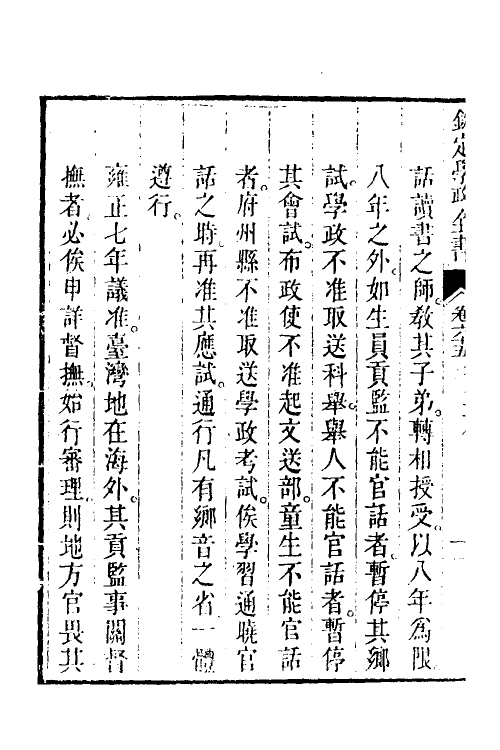 欽定學政全書
話讀書之師。教其子弟。轉相授受。以八年爲限。
八年之外。如生員貢監不能官話者。暫停其鄉
試。學政不准取送科舉。舉人不能官話者。暫停
其會試。布政使不准起文送部。童生不能官話
者。府州縣不准取送學政考試。俟學習通曉官
話之時。再准其應試。通行凡有鄉音之省。一體
遵行。
雍正七年議准。臺灣地在海外。其貢監事關督
撫者。必俟申詳督撫。始行審理。則地方官畏其